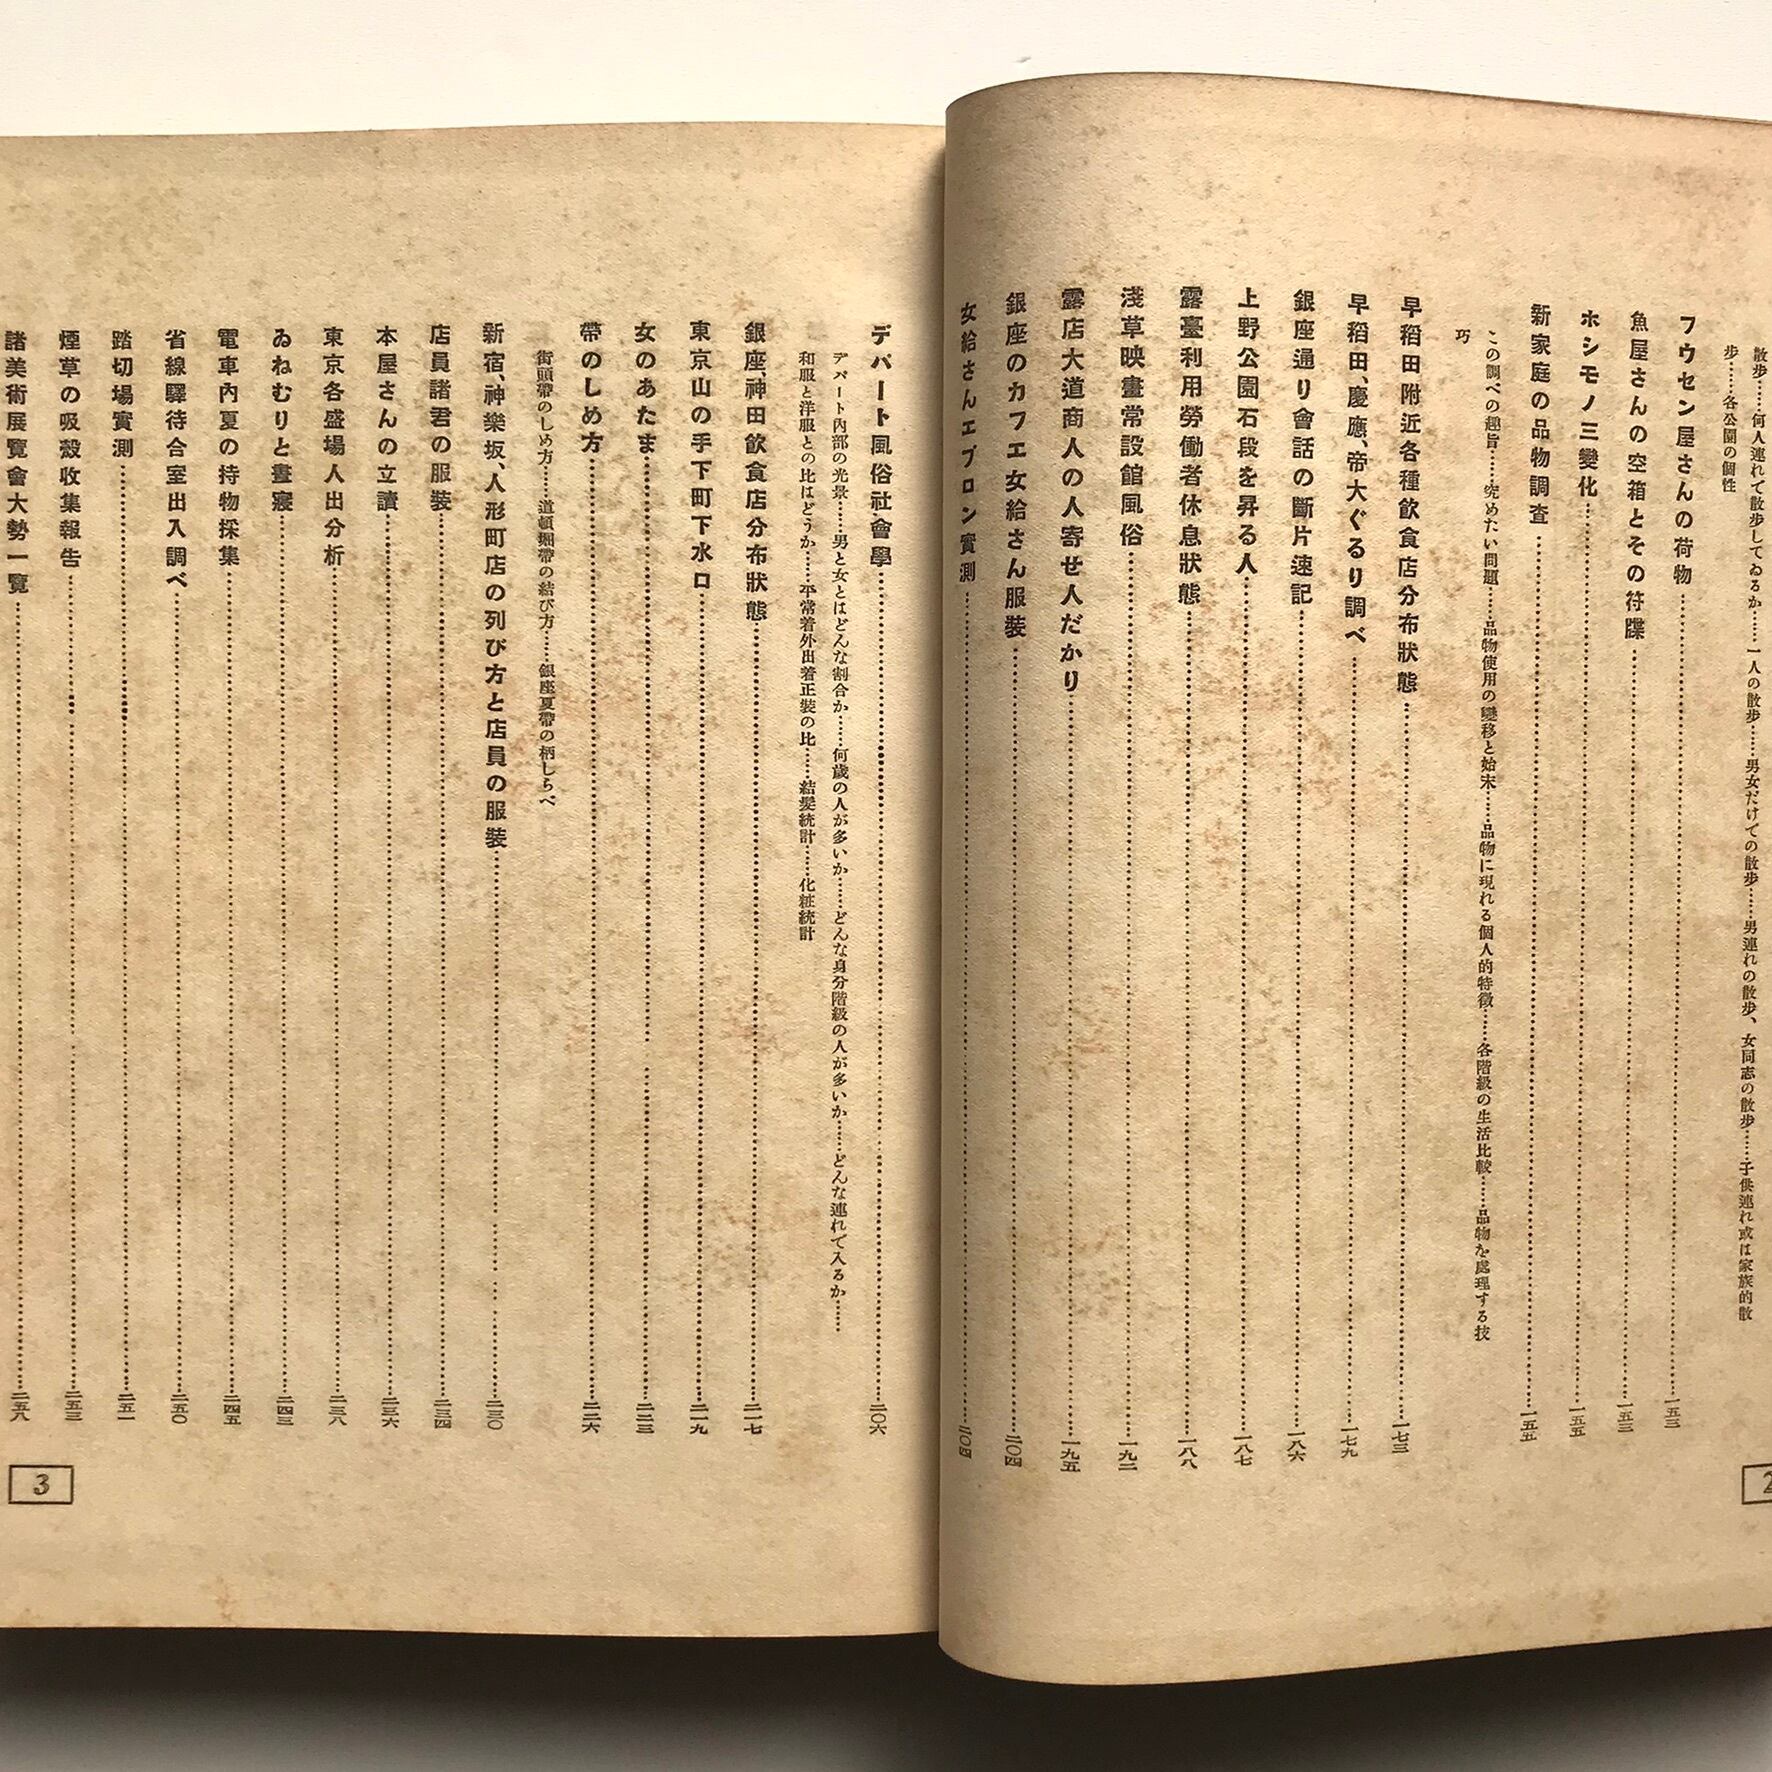 散歩……何人連れて散歩してゐるか……一人の散歩……男女だけての散歩……男連れの散歩、女同志の散歩……子供連れ或は家族的散
歩……各公園の個性
フウセン屋さんの荷物…………一五三
魚屋さんの空箱とその符牒…………一五三
ホシモノ三變化…………一五五
新家庭の品物調査…………一五五
この調べの趣旨……究めたい問題……品物使用の變移と始末……品物に現れる個人的特徴……各階級の生活比較……品物を處理する技
巧
早稻田附近各種飲食店分布狀態…………一七三
早稻田、慶應、帝大ぐるり調べ…………一七九
銀座通り會話の斷片速記…………一八六
上野公園石段を昇る人…………一八七
露臺利用勞働者休息狀態…………一八八
淺草映畫常設館風俗…………一九二
露店大道商人の人寄せ人だかり…………一九五
銀座のカフエ女給さん服裝…………二〇四
女給さんエプロン實測…………二〇四
2
デパート風俗社會學…………二〇六
デパート內部の光景……男と女とはどんな割合か……何歲の人が多いか……どんな身分階級の人が多いか……どんな連れて入るか……
和服と洋服との比はどうか……平常着外出着正裝の比……結髮統計……化粧統計
銀座、神田飲食店分布狀態…………二一七
東京山の手下町下水口…………二一九
女のあたま…………二二三
帶のしめ方…………二二六
街頭帶のしめ方……道頓堀帶の結び方……銀座夏帶の柄しらべ
新宿、神樂坂、人形町店の列び方と店員の服裝…………二三〇
店員諸君の服裝…………二三四
本屋さんの立讀…………二三六
東京各盛場人出分析…………二三八
ゐねむりと晝寢…………二四三
電車內夏の持物採集…………二四五
省線驛待合室出入調べ…………二五〇
踏切場實測…………二五一
煙草の吸殼收集報告…………二五三
諸美術展覽會大勢一覽…………二五八
3